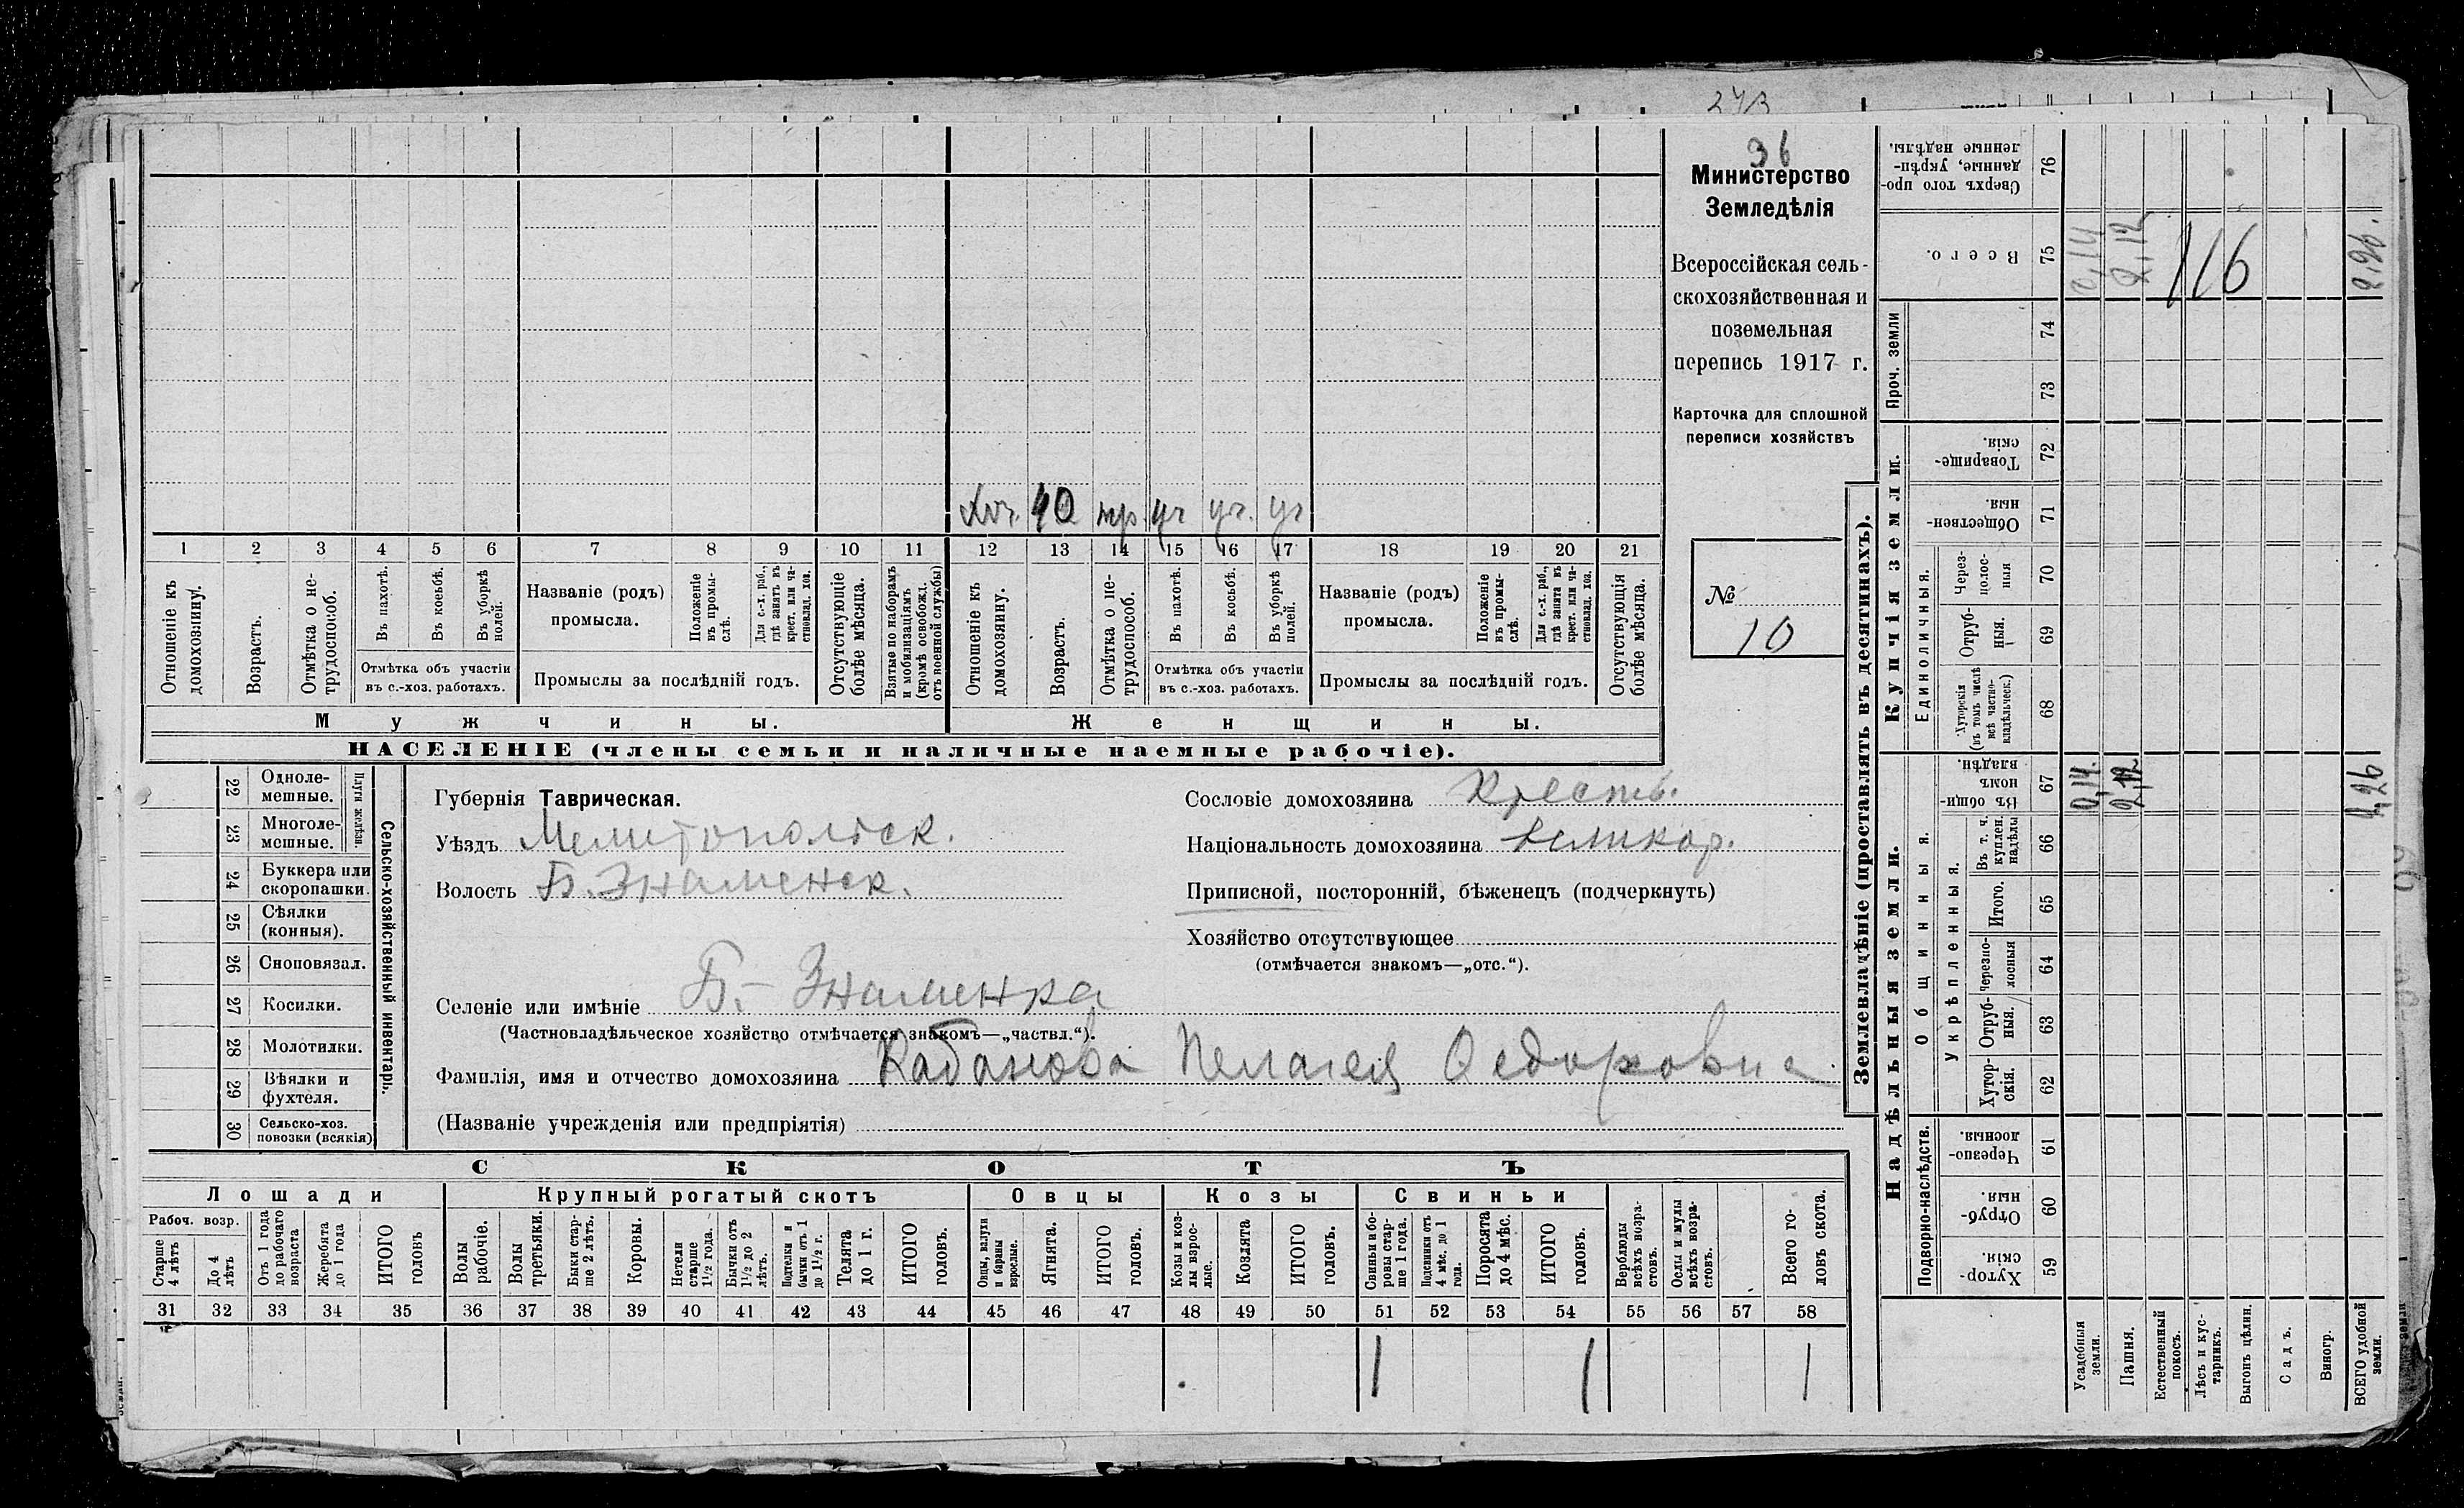 243
36
Министерство
Земледѣлія
Всероссійская сель-
скохозяйственная и
поземельная
перепись 1917 г.
Карточка для сплошной
переписи хозяйствъ
№
10
40 уч уч. уч
1 2 3 4 5 6 7 8 9 10 11 12 13 14 15 16 17 18 19 20 21
Отношеніе къ домохозяину.
Возрастъ.
Отмѣтка о не-трудоспособ.
Въ пахотѣ.
Въ косьбѣ.
Въ уборкѣ полей.
Отмѣтка объ участіи
въ с.-хоз. работахъ.
Названіе (родъ)
промысла.
Положеніе въ промы-слѣ.
Для с.-х. раб., гдѣ занятъ въ крест. или ча-стновлад. хоз.
Промыслы за послѣдній годъ.
Отсутствующіе болѣе мѣсяца.
Взятые по наборамъ и мобилизаціямъ (кромѣ освобожд. отъ военной службы)
Отношеніе къ домохозяину.
Возрастъ.
Отмѣтка о не-трудоспособ.
Въ пахотѣ.
Въ косьбѣ.
Въ уборкѣ полей.
Отмѣтка объ участіи
въ с.-хоз. работахъ.
Названіе (родъ)
промысла.
Положеніе въ промы-слѣ.
Для с.-х. раб., гдѣ занята въ крест. или ча-стновлад. хоз.
Промыслы за послѣдній годъ.
Отсутствующія болѣе мѣсяца.
Мужчины. Женщины.
НАСЕЛЕНІЕ (члены семьи и наличные наемные рабочіе).
Сельско-хозяйственный инвентарь.
Плуги желѣзн.
22 Одноле-мешные.
23 Многоле-мешные.
24 Буккера или скоропашки.
25 Сѣялки (конныя).
26 Сноповязал.
27 Косилки.
28 Молотилки.
29 Вѣялки и фухтеля.
30 Сельско-хоз. повозки (всякія)
Губернія Таврическая.
Уѣздъ Мелитопольск.
Волость Б. Знаменск.
Сословіе домохозяина Кресть.
Національность домохозяина великор.
Приписной, посторонній, бѣженецъ (подчеркнуть)
Хозяйство отсутствующее
(отмѣчается знакомъ—„отс.“).
Селеніе или имѣніе Б.- Знаменка
(Частновладѣльческое хозяйство отмѣчается знакомъ—„частвл.“).
Фамилія, имя и отчество домохозяина Кабанова Пелагея Федоровна
(Названіе учрежденія или предпріятія)
СКОТЪ
Лошади Крупный рогатый скотъ Овцы Козы Свиньи
Рабоч. возр.
Старше 4 лѣтъ
До 4 лѣтъ
Отъ 1 года до рабочаго возраста
Жеребята до 1 года
ИТОГО головъ
Волы рабочіе.
Волы третьяки.
Быки стар-ше 2 лѣтъ.
Коровы.
Нетели старше 1½ года.
Бычки отъ 1½ до 2 лѣтъ.
Подтелки и бычки отъ 1 до 1½ г.
Телята до 1 г.
ИТОГО головъ.
Овцы, валухи и бараны взрослые.
Ягнята.
ИТОГО головъ.
Козы и коз-лы взрос-лые.
Козлята
ИТОГО головъ.
Свиньи и бо-ровы стар-ше 1 года.
Подсвинки отъ 4 мѣс. до 1 года.
Поросята до 4 мѣс.
ИТОГО головъ.
Верблюды всѣхъ возра-стовъ.
Ослы и мулы всѣхъ возра-стовъ.
Всего го-ловъ скота.
31 32 33 34 35 36 37 38 39 40 41 42 43 44 45 46 47 48 49 50 51 52 53 54 55 56 57 58
1 1 1
Землевладѣніе (проставлять въ десятинахъ).
Надѣльныя земли.
Купчія земли.
Проч. земли
Подворно-наслѣдств.
Общинныя.
Укрѣпленныя.
Единоличныя.
Хутор-скія. 59
Отруб-ныя 60
Черезпо-лосныя. 61
Хутор-скія. 62
Отруб-ныя. 63
Черезпо-лосныя 64
Итого. 65
Въ т. ч. куплен. надѣлы 66
Въ общин-номъ владѣн. 67
Хуторскія (въ томъ числѣ всѣ частно-владѣльческ.) 68
Отруб-ныя. 69
Через-полос-ныя 70
Обществен-ныя. 71
Товарище-скія. 72
73
74
Всего. 75
Сверхъ того про-данные, укрѣп-ленные надѣлы. 76
Усадебныя земли.
Пашня.
Естественный покосъ.
Лѣсъ и кус-тарникъ.
Выгонъ цѣлин.
Садъ.
Виногр.
ВСЕГО удобной земли.
0,14 2,12 2,26
0,14 2,12 116 2,26.